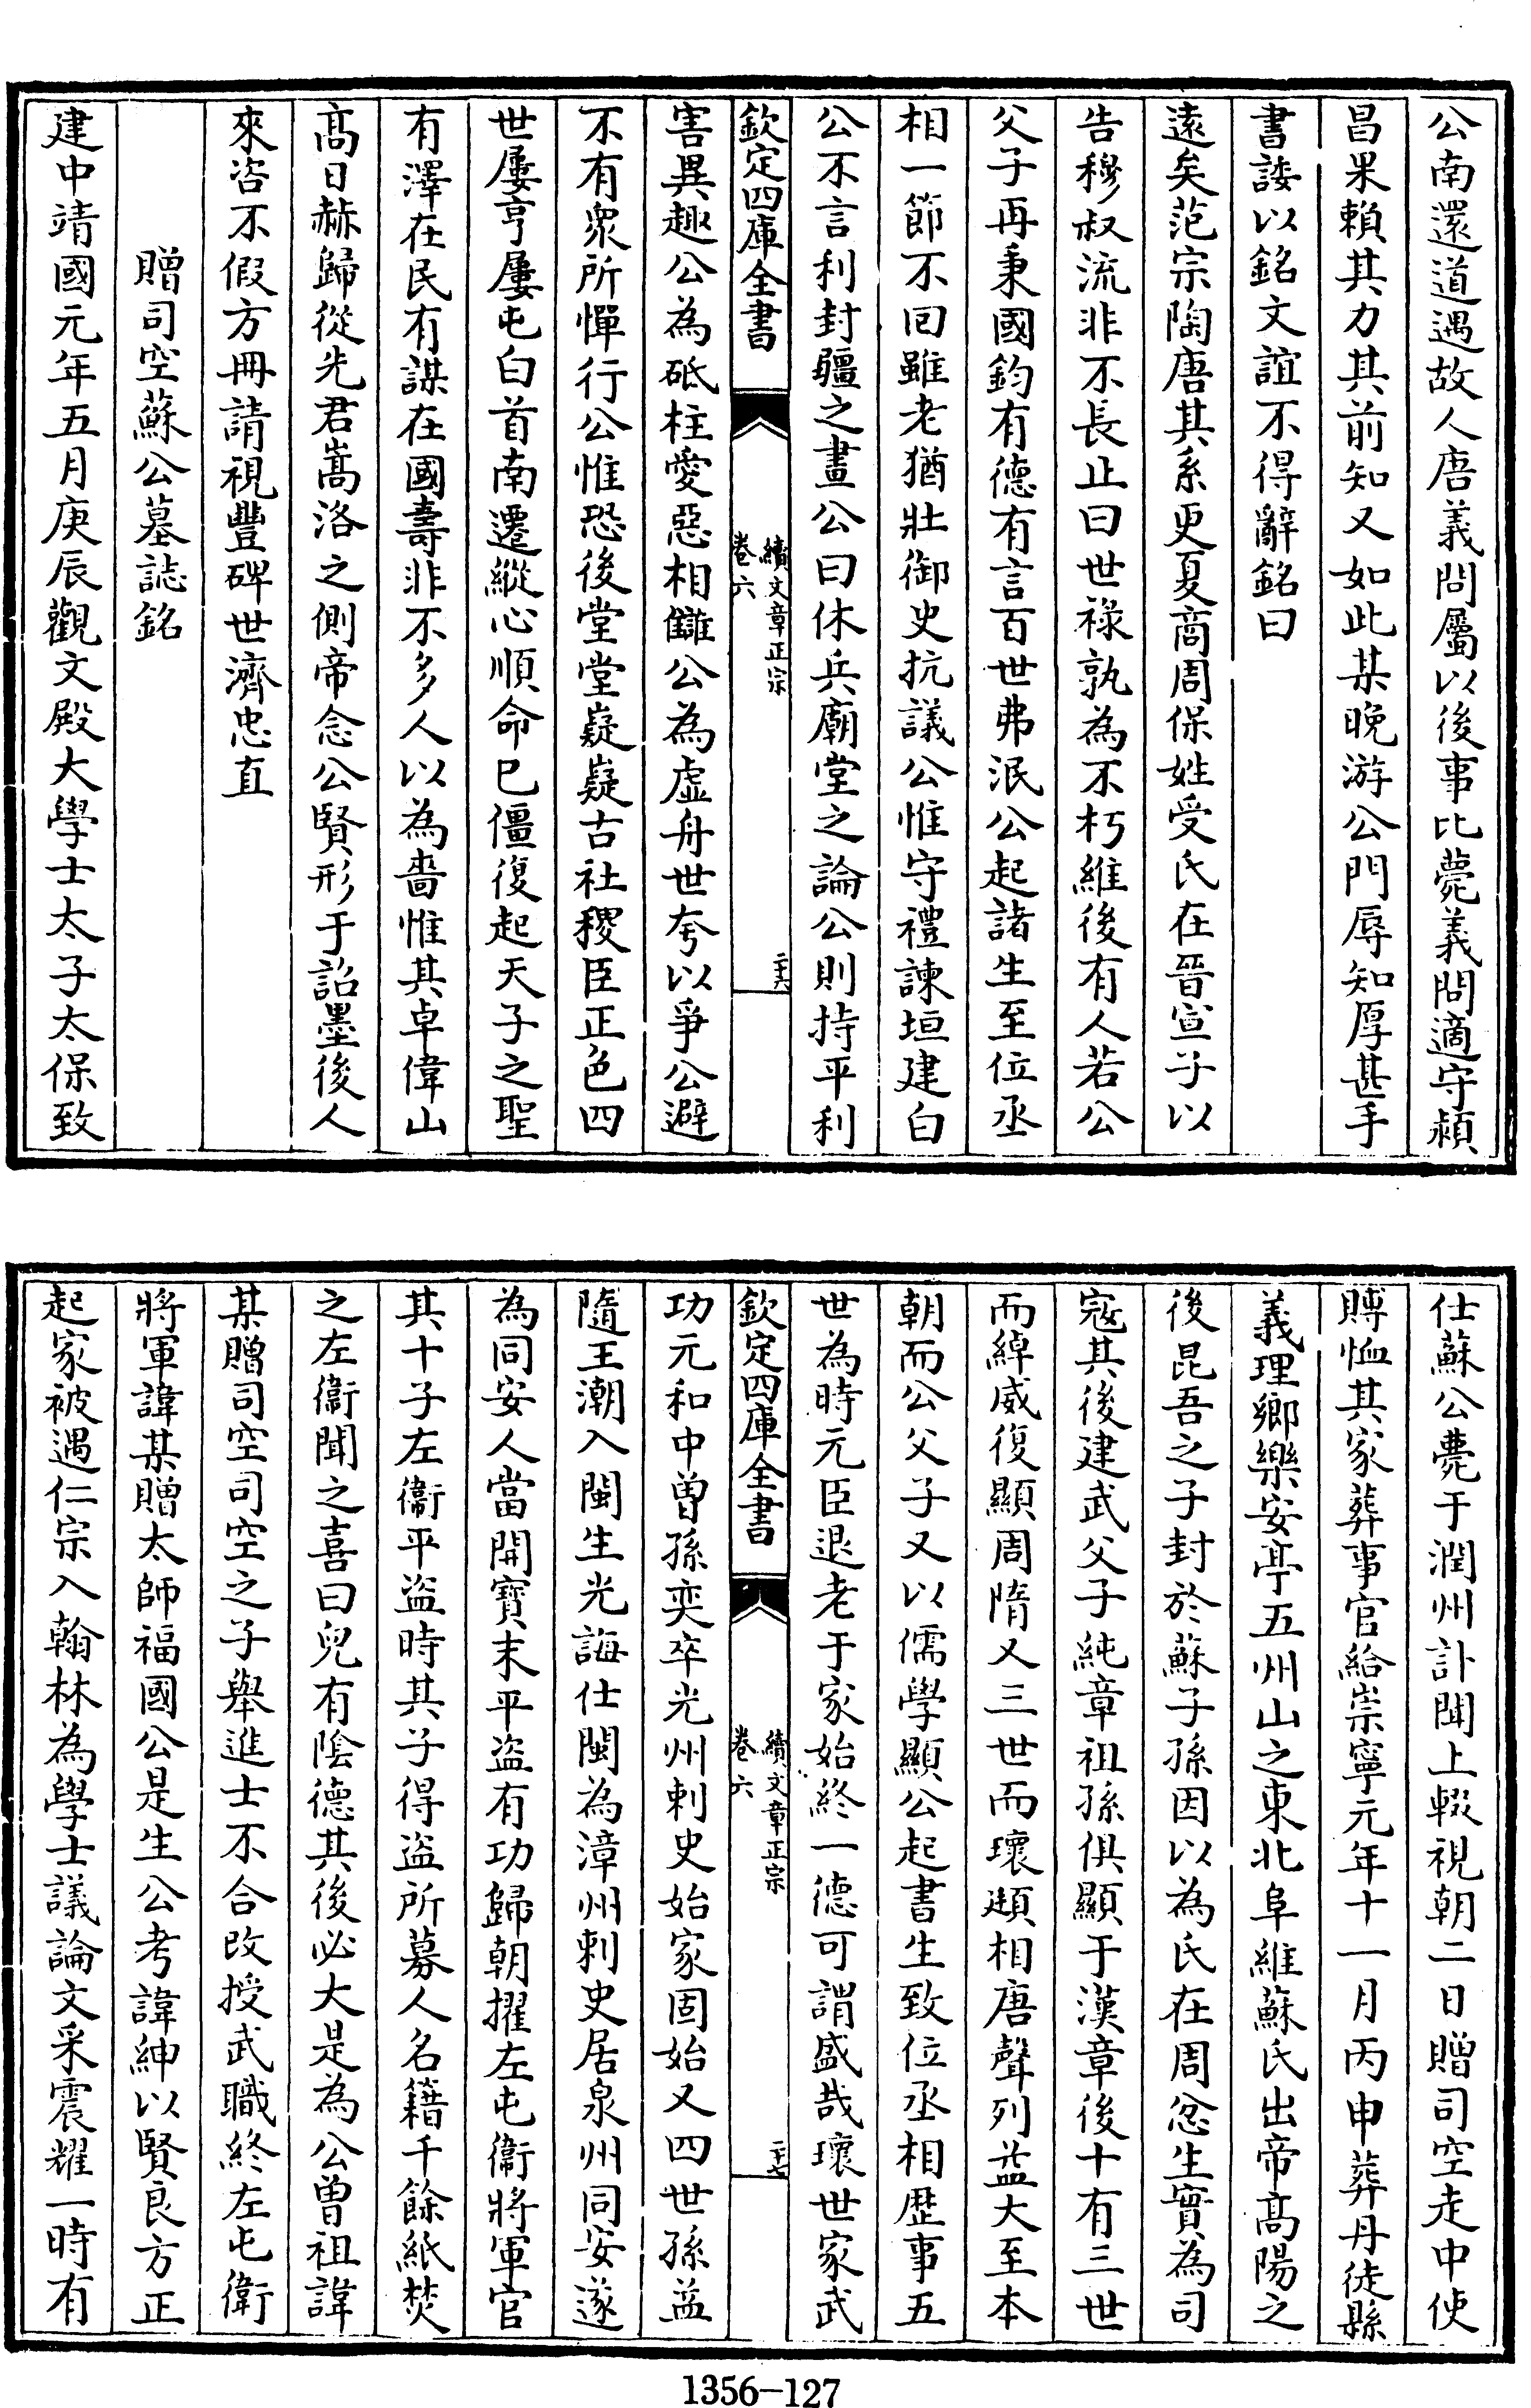 公南還道遇故人唐義問屬以後事比薨義問適守潁
昌果賴其力其前知又如此某晚游公門辱知厚甚手
書諉以銘文誼不得辭銘曰
遠矣范宗陶唐其系更夏商周保姓受氏在晉宣子以
告穆叔流非不長止曰世祿孰為不朽維後有人若公
父子再秉國鈞有德有言百世弗泯公起諸生至位丞
相一節不回雖老猶壯御史抗議公惟守禮諫垣建白
公不言利封疆之畫公曰休兵廟堂之論公則持平利
欽定四庫全書
續文章正宗
卷六
二十六
害異趣公為砥柱愛惡相讎公為虛舟世夸以爭公避
不有衆所憚行公惟恐後堂堂嶷嶷古社稷臣正色四
世屢亨屢屯白首南遷縱心順命已僵復起天子之聖
有澤在民有謀在國壽非不多人以為嗇惟其卓偉山
高日赫歸從先君嵩洛之側帝念公賢形于詔墨後人
來咨不假方冊請視豐碑世濟忠直
贈司空蘇公墓誌銘
建中靖國元年五月庚辰觀文殿大學士太子太保致
仕蘇公薨于潤州訃聞上輟視朝二日贈司空走中使
賻恤其家葬事官給崇寧元年十一月丙申葬丹徒縣
義理鄉樂安亭五州山之東北阜維蘇氏出帝高陽之
後昆吾之子封於蘇子孫因以為氏在周忿生實為司
寇其後建武父子純章祖孫俱顯于漢章後十有三世
而綽威復顯周隋又三世而瓌頲相唐聲列益大至本
朝而公父子又以儒學顯公起書生致位丞相歷事五
世為時元臣退老于家始終一德可謂盛哉瓌世家武
欽定四庫全書
續文章正宗
卷六
二十七
功元和中曾孫奕卒光州刺史始家固始又四世孫益
隨王潮入閩生光誨仕閩為漳州刺史居泉州同安遂
為同安人當開寶末平盜有功歸朝擢左屯衛將軍官
其十子左衛平盜時其子得盜所募人名籍千餘紙焚
之左衛聞之喜曰兒有陰德其後必大是為公曾祖諱
某贈司空司空之子舉進士不合改授武職終左屯衛
將軍諱某贈太師福國公是生公考諱紳以賢良方正
起家被遇仁宗入翰林為學士議論文采震耀一時有
1356-127